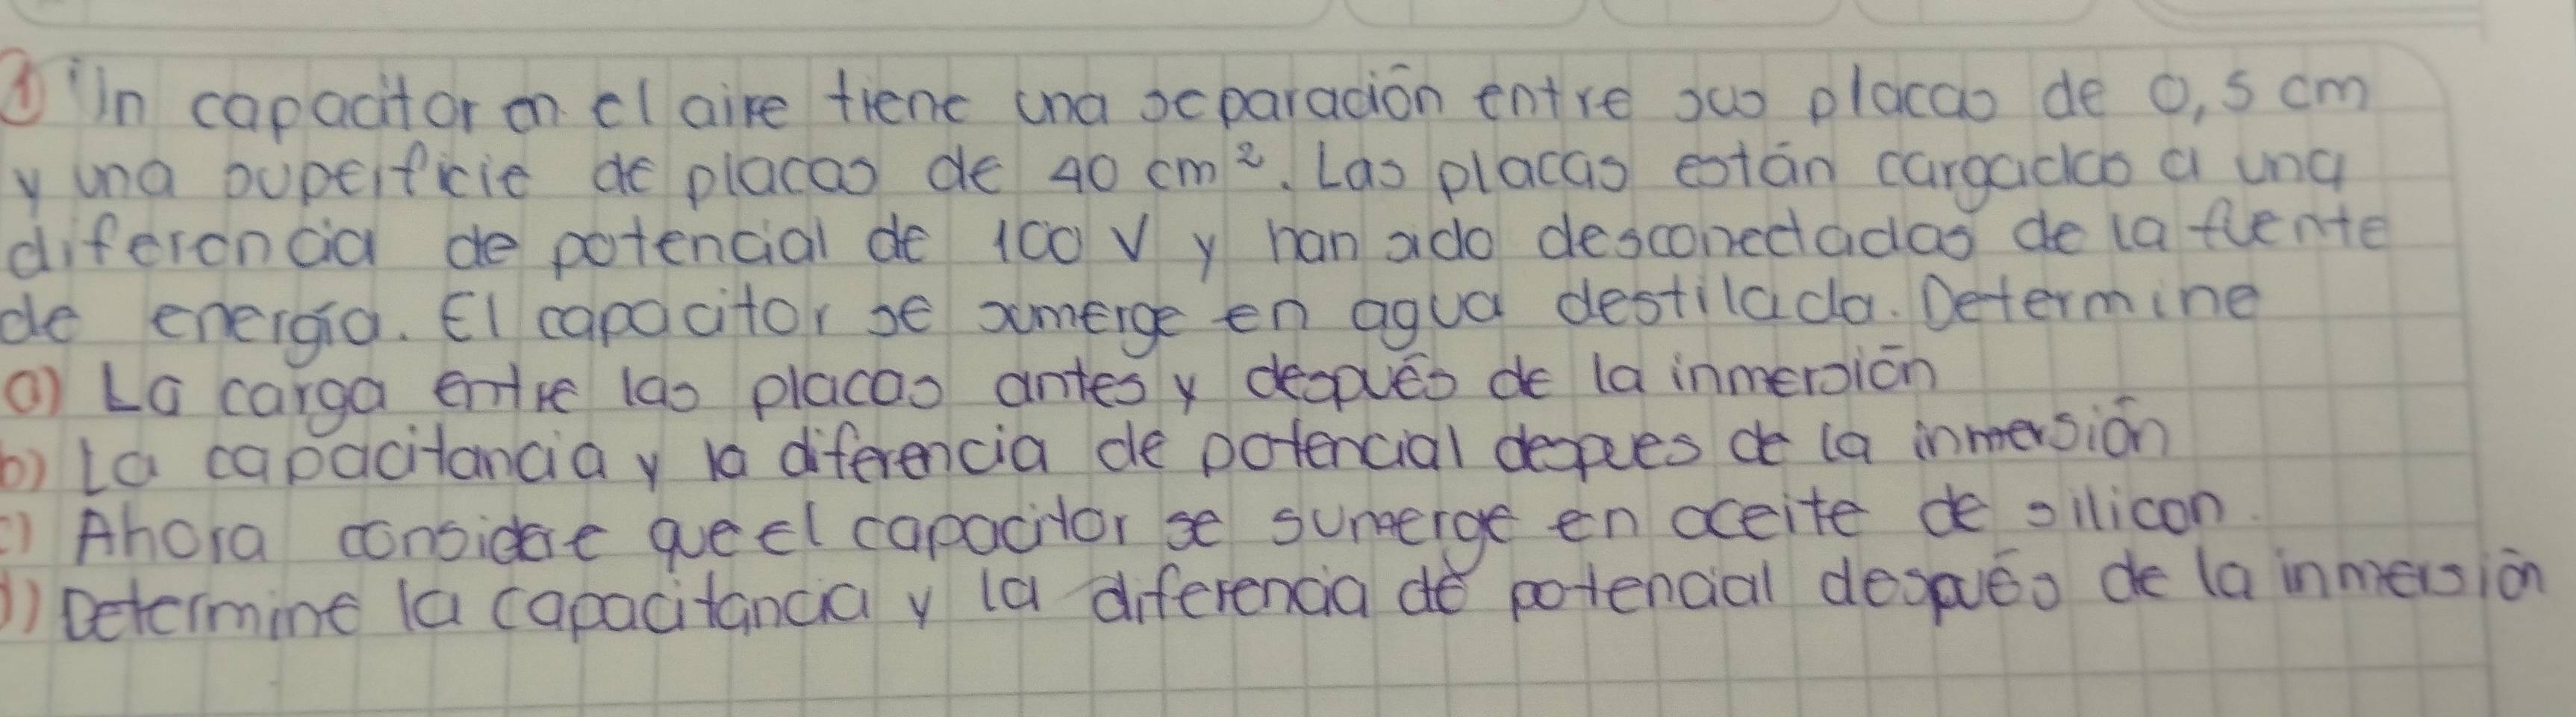 ① Un capacitor en el aire tiene una separación entre sus placas de 0,5 cm
y una superficie de placas de 40 cm². Las placas están cargadas a una
diferencia de potencial de 100 V y han sido desconectadas de la fuente
de energía. El capacitor se sumerge en agua destilada. Determine
a) La carga entre las placas antes y después de la inmersión
b) La capacitancia y la diferencia de potencial despues de la inmersión
c) Ahora considere que el capacitor se sumerge en aceite de silicon.
d) Determine la capacitancia y la diferencia de potencial después de la inmersión